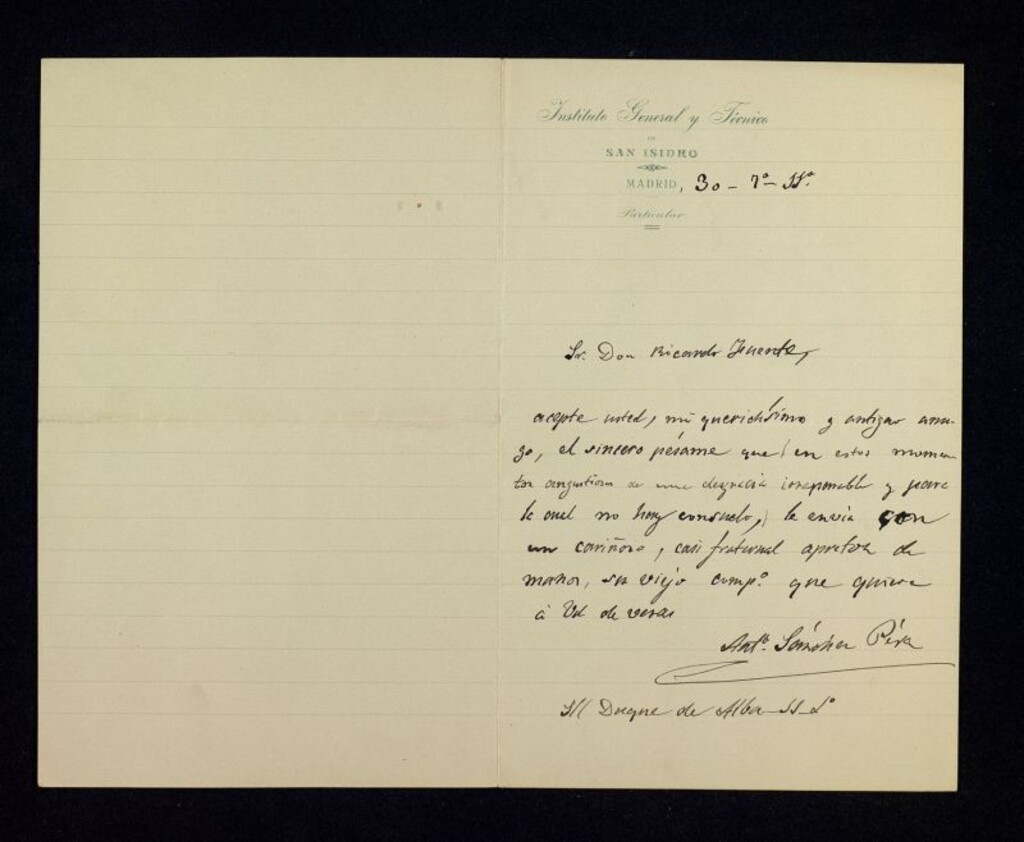 Instituto General y Técnico
DE
SAN ISIDRO
MADRID, 30 - 7º - 11º
Particular
Sr. Don Ricardo Fuente,
acepte usted, mi queridísimo y antiguo ami-
go, el sincero pésame que (en estos momen-
tos angustiosos de una desgracia irreparable y para
la cual no hay consuelo,) le envia con
un cariñoso, casi fraternal apretón de
manos, su viejo comp.º que quiere
á Vd de veras
Antº. Sánchez Pérez
Duque de Alba - 11 -